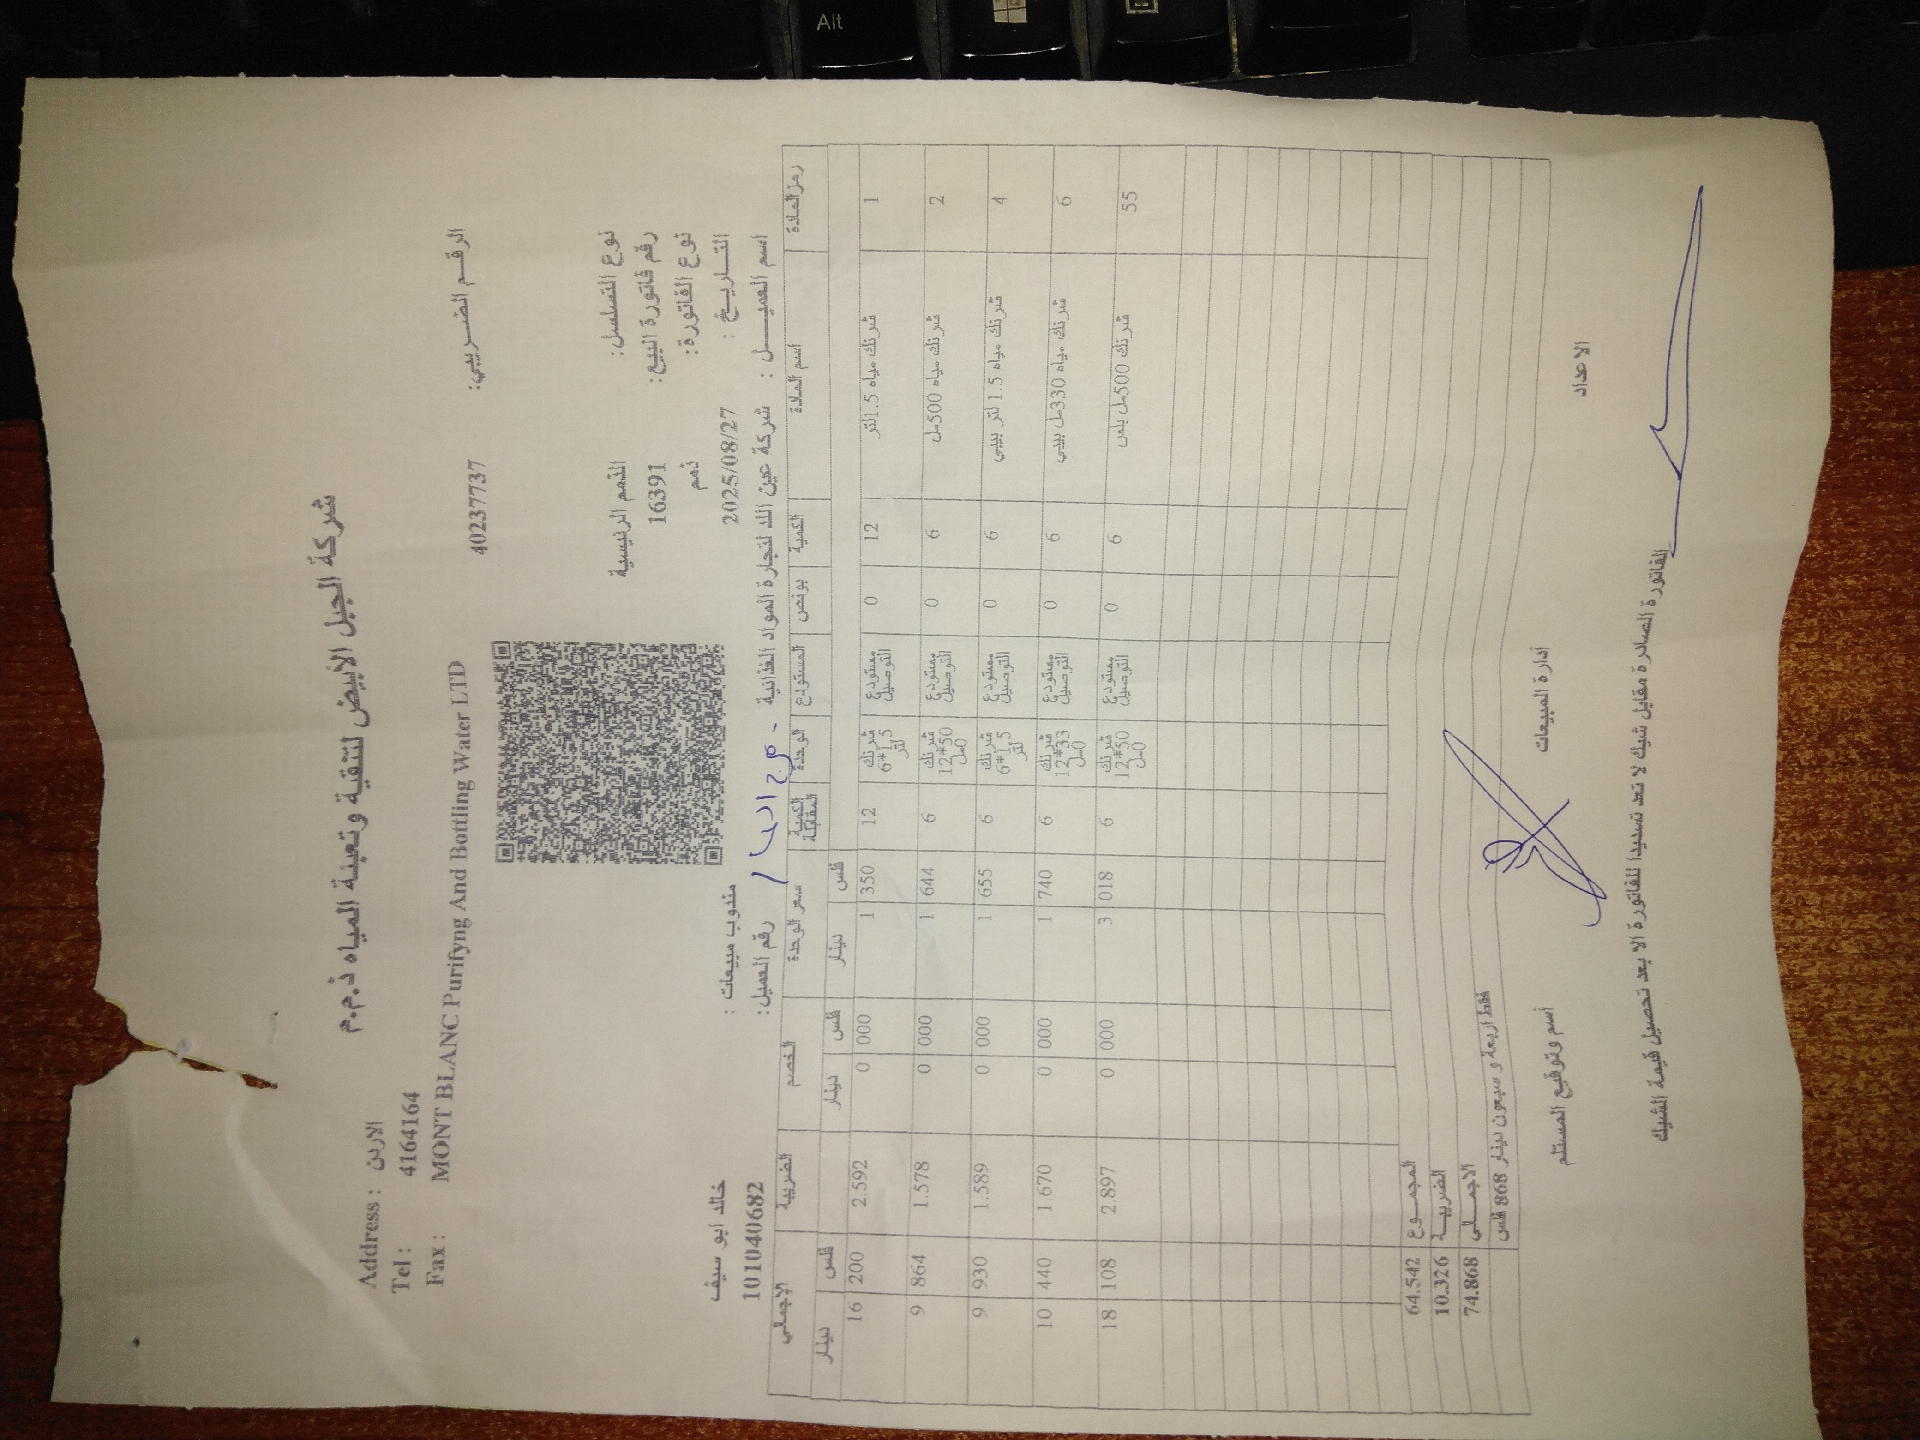 شركة الجبل الابيض لتنقية وتعبئة المياه ذ.م.م
Address : الاردن
Tel : 4164164
Fax :
MONT BLANC Purifyng And Bottling Water LTD
الرقم الضريبي: 40237737
نوع التسلسل: الذمم الرئيسية
رقم فاتورة البيع: 16391
نوع الفاتورة: ذمم
التاريخ : 2025/08/27 مندوب مبيعات : خالد ابو سيف
اسم العميل : شركة عين اللد لتجارة المواد الغذائية رقم العميل: 101040682
رمز المادة اسم المادة الكمية بونص المستودع الوحدة الكمية المقابلة سعر الوحدة الخصم الضريبة الاجمالي
دينار فلس دينار فلس دينار فلس
1 شرنك مياه 1.5لتر 12 0 مستودع التوصيل شرنك 6*1.5 لتر 12 1 350 0 000 2.592 16 200
2 شرنك مياه 500مل 6 0 مستودع التوصيل شرنك 12*500مل 6 1 644 0 000 1.578 9 864
4 شرنك مياه 1.5 لتر بيبي 6 0 مستودع التوصيل شرنك 6*1.5 لتر 6 1 655 0 000 1.589 9 930
6 شرنك مياه 330مل بيبي 6 0 مستودع التوصيل شرنك 12*330مل 6 1 740 0 000 1.670 10 440
55 شرنك 500مل بلس 6 0 مستودع التوصيل شرنك 12*500مل 6 3 018 0 000 2.897 18 108
المجموع 64.542
الضريبة 10.326
الاجمالي 74.868
فقط اربعة و سبعون دينار 868 فلس
الاعداد ادارة المبيعات اسم وتوقيع المستلم
الفاتورة الصادرة مقابل شيك لا تعد تسديدا للفاتورة الا بعد تحصيل قيمة الشيك
Alt